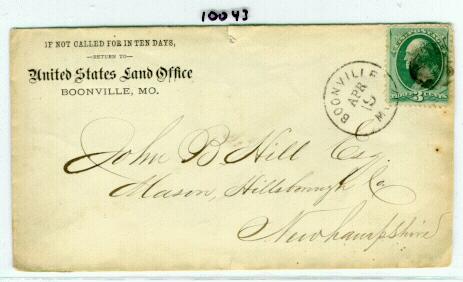 10043
IF NOT CALLED FOR IN TEN DAYS,
—RETURN TO—
United States Land Office
BOONVILLE, MO.
BOONVILLE
APR
MO.
THREE 3 CENTS
John B Hill Esq.
Mason, Hillsborough Co
Newhampshire